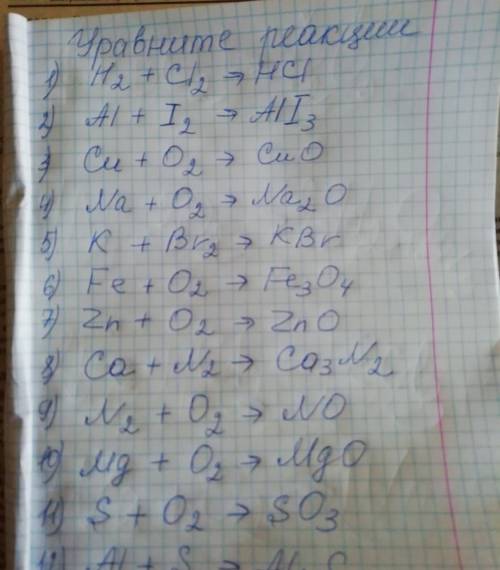 Уравните реакции
1) H₂ + Cl₂ → HCl
2) Al + I₂ → AlI₃
3) Cu + O₂ → CuO
4) Na + O₂ → Na₂O
5) K + Br₂ → KBr
6) Fe + O₂ → Fe₃O₄
7) Zn + O₂ → ZnO
8) Ca + N₂ → Ca₃N₂
9) N₂ + O₂ → NO
10) Mg + O₂ → MgO
11) S + O₂ → SO₃
12) Al + S →